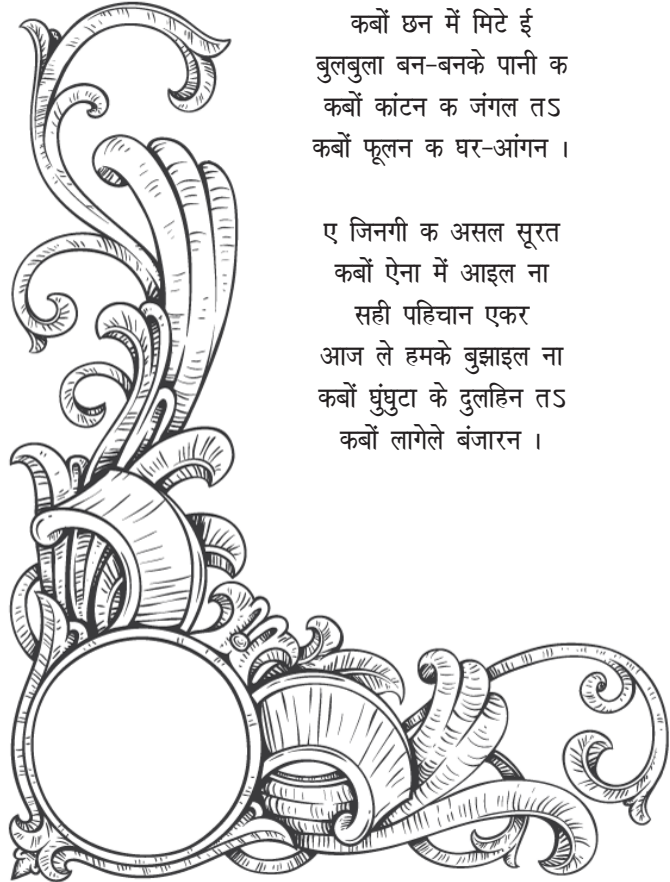 कबों छन में मिटे ई
बुलबुला बन-बनके पानी क
कबों कांटन क जंगल तऽ
कबों फूलन क घर-आंगन ।
ए जिनगी क असल सूरत
कबों ऐना में आइल ना
सही पहिचान एकर
आज ले हमके बुझाइल ना
कबों घुंघुटा के दुलहिन तऽ
कबों लागेले बंजारन ।